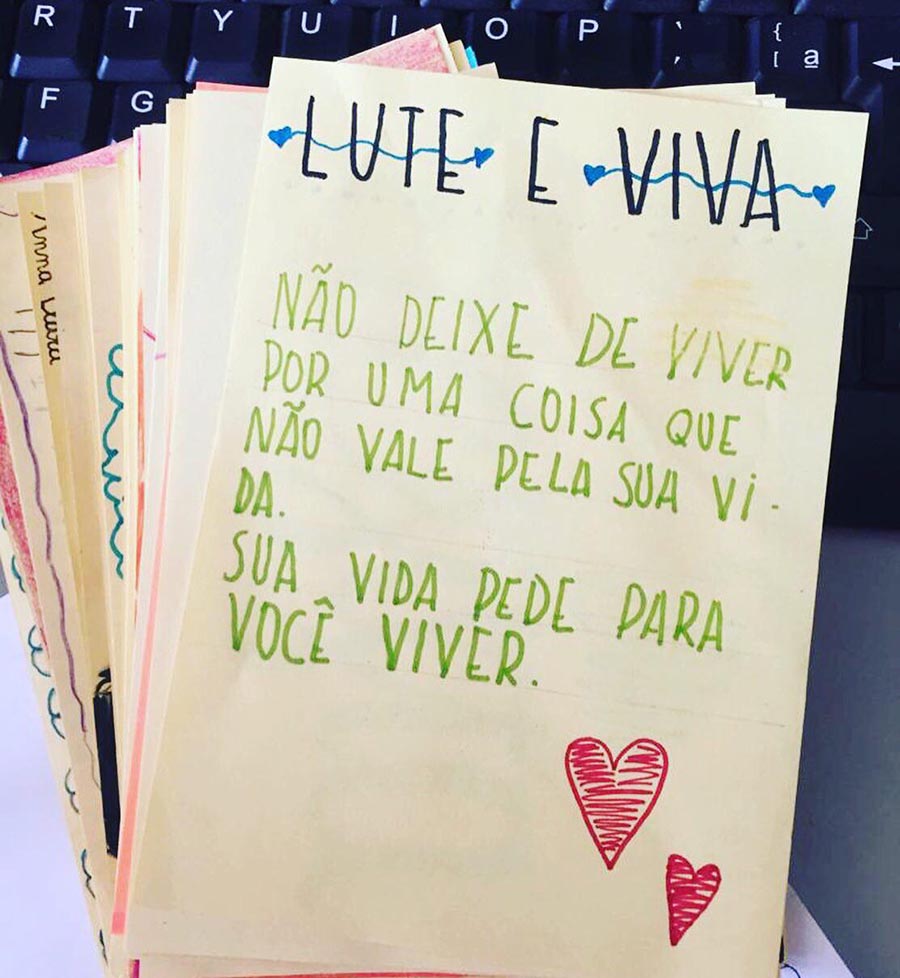 R T Y U I O P ` { [ ª
F G
LUTE E VIVA
NÃO DEIXE DE VIVER
POR UMA COISA QUE
NÃO VALE PELA SUA VI-
DA.
SUA VIDA PEDE PARA
VOCÊ VIVER.
Anna